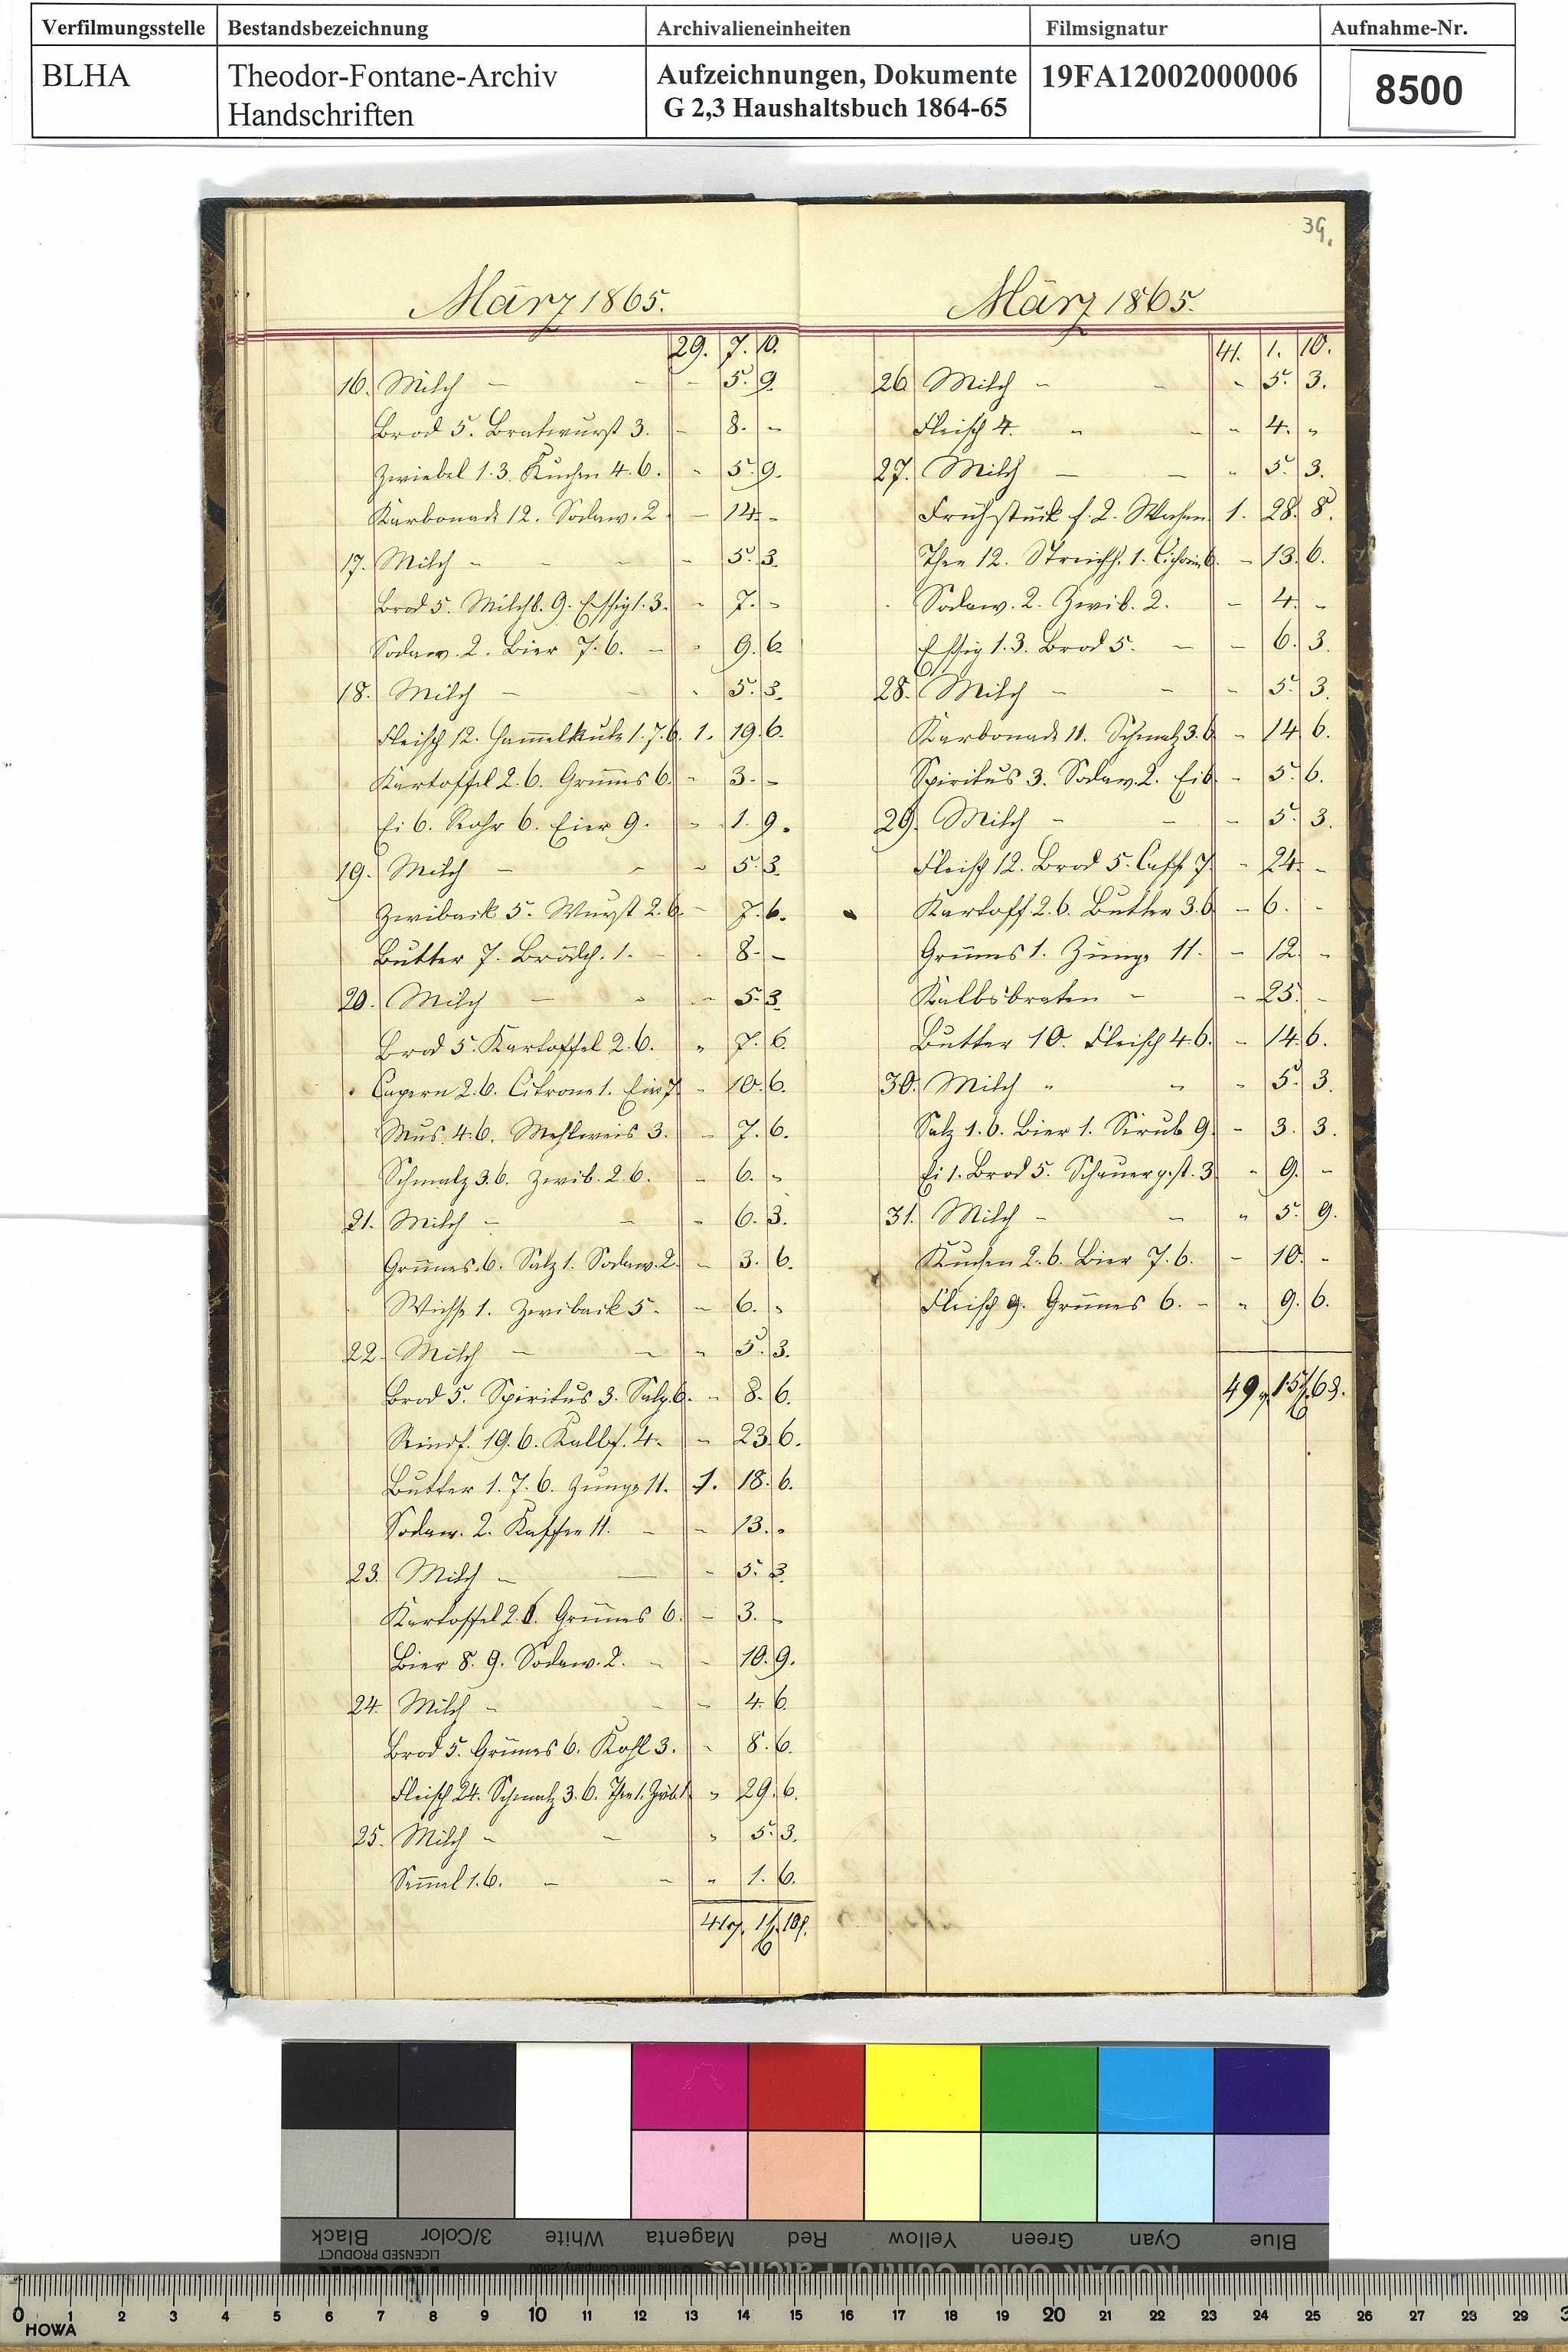 Verfilmungsstelle Bestandsbezeichnung Archivalieneinheiten Filmsignatur Aufnahme-Nr.
BLHA Theodor-Fontane-Archiv Aufzeichnungen, Dokumente 19FA12002000006 8500
Handschriften G 2,3 Haushaltsbuch 1864-65
März 1865.
29. 7. 10.
16. Milch - - - 5. 9.
Brod 5. Bratwurst 3. - 8. -
Zwiebel 1.3. Kuchen 4.6. - 5. 9.
Karbonade 12. Sodaw. 2 - 14. -
17. Milch - - - 5. 3.
Brod 5. Milchb. 9. Essig 1.3. - 7. -
Sodaw. 2. Bier 7.6. - - 9. 6.
18. Milch - - - 5. 3.
Fleisch 12. Ham̄elkeule 1.7.6. 1. 19. 6.
Kartoffel 2.6. Grünes 6. - 3. -
Ei 6. Rohr 6. Eier 9. - 1. 9.
19. Milch - - - 5. 3.
Zwiback 5. Wurst 2.6. - 7. 6.
Butter 7. Brödch. 1. - - 8. -
20. Milch - - - 5. 3.
Brod 5. Kartoffel 2.6. - 7. 6.
Capern 2.6. Citrone 1. Eier 7. - 10. 6.
Mus. 4.6. Mehlweis 3. - 7. 6.
Schmalz 3.6. Zwib. 2.6. - 6. -
21. Milch - - - 6. 3.
Grünes. 6. Salz 1. Sodaw. 2. - 3. 6.
Wichse 1. Zwiback 5. - 6. -
22. Milch - - - 5. 3.
Brod 5. Spiritus 3. Salz. 6. - 8. 6.
Rindf. 19.6. Kalbf. 4. - 23. 6.
Butter 1.7.6. Zunge 11. 1. 18. 6.
Sodaw. 2. Kaffee 11. - - 13. -
23. Milch - - - 5. 3.
Kartoffel 2.6. Grünes 6. - 3. -
Bier 8.9. Sodaw. 2. - - 10. 9.
24. Milch - - - 4. 6.
Brod 5. Grünes 6. Kohl 3. - 8. 6.
Fleisch 24. Schmalz 3.6. Thee 1. - 29. 6.
25. Milch - - - 5. 3.
Sem̄el 1.6. - - - 1. 6.
41 1 10
39.
März 1865.
41. 1. 10.
26. Milch - - - 5. 3.
Fleisch 4. - - - 4. -
27. Milch - - - 5. 3.
Frühstück f. 2. Wochen 1. 28. 8.
Thee 12. Streichh. 1. Cichorie 6. - 13. 6.
Sodaw. 2. Zwib. 2. - 4. -
Essig 1.3. Brod 5. - - 6. 3.
28. Milch - - - 5. 3.
Karbonade 11. Schmalz 3.6 - 14. 6.
Spiritus 3. Sodaw. 2. Ei 6 - 5. 6.
29. Milch - - - 5. 3.
Fleisch 12. Brod 5. Caffe 7. - 24. -
Kartoff 2.6. Butter 3.6 - 6. -
Grünes 1. Zunge 11. - 12. -
Kalbsbraten - - 25. -
Butter 10. Fleisch 4.6. - 14. 6.
30. Milch - - - 5. 3.
Salz 1.6. Bier 1. Sirub 9. - 3. 3.
Ei 1. Brod 5. Scheuergst. 3 - 9. -
31. Milch - - - 5. 9.
Kuchen 2.6. Bier 7.6. - 10. -
Fleisch 9. Grünes 6. - - 9. 6.
49 15
Black 3/Color White Magenta Red Yellow Green Cyan Blue
LICENSED PRODUCT
Kodak © The Tiffen Company, 2000 KODAK Color Control Patches
0 1 2 3 4 5 6 7 8 9 10 11 12 13 14 15 16 17 18 19 20 21 22 23 24 25 26 27 28 29 3
HOWA